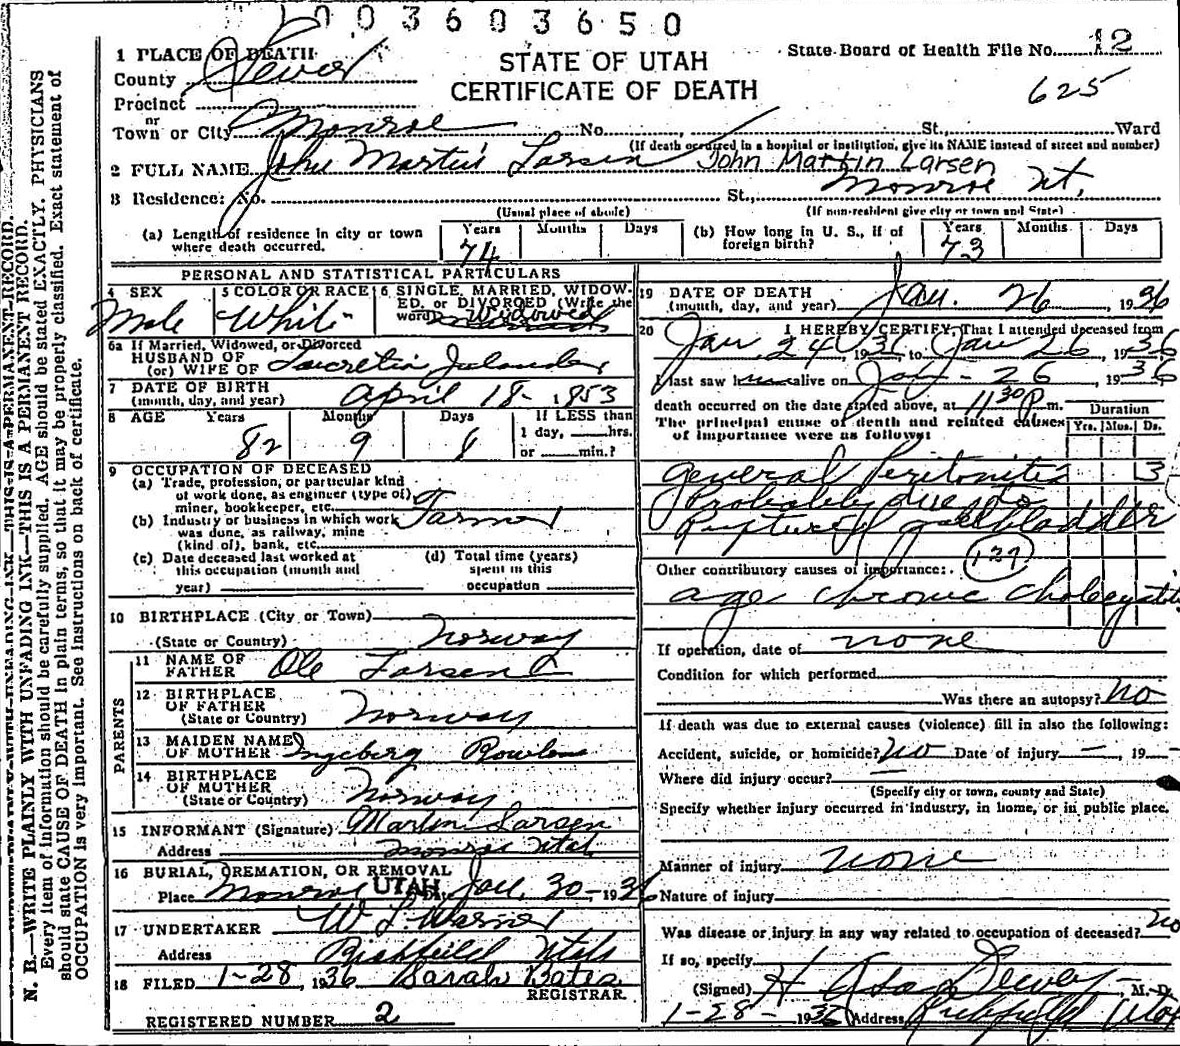 003603650
STATE OF UTAH
CERTIFICATE OF DEATH
State Board of Health File No. 12
625
1 PLACE OF DEATH
County Sevier
Precinct
or
Town or City Monroe No. St. Ward
(If death occurred in a hospital or institution, give its NAME instead of street and number)
2 FULL NAME John Martin Larsen John Martin Larsen
3 Residence: No. St., Monroe Ut.
(Usual place of abode) (If non-resident give city or town and State)
(a) Length of residence in city or town where death occurred. Years 74 Months Days
(b) How long in U. S., if of foreign birth? Years 73 Months Days
PERSONAL AND STATISTICAL PARTICULARS
4 SEX Male
5 COLOR OR RACE White
6 SINGLE, MARRIED, WIDOWED, or DIVORCED (Write the word) Widowed
6a If Married, Widowed, or Divorced
HUSBAND OF
(or) WIFE OF Lucretia
7 DATE OF BIRTH
(month, day, and year) April 18 - 1853
8 AGE Years 82 Months 9 Days 8
If LESS than
1 day, hrs.
or min.?
9 OCCUPATION OF DECEASED
(a) Trade, profession, or particular kind
of work done, as engineer (type of)
miner, bookkeeper, etc. Farmer
(b) Industry or business in which work
was done, as railway, mine
(kind of), bank, etc.
(c) Date deceased last worked at
this occupation (month and
year)
(d) Total time (years)
spent in this
occupation
10 BIRTHPLACE (City or Town)
(State or Country) Norway
PARENTS
11 NAME OF
FATHER Ole Larsen
12 BIRTHPLACE
OF FATHER
(State or Country) Norway
13 MAIDEN NAME
OF MOTHER Ingeberg
14 BIRTHPLACE
OF MOTHER
(State or Country) Norway
15 INFORMANT (Signature) Martin Larsen
Address Monroe Utah
16 BURIAL, CREMATION, OR REMOVAL
Place Monroe UTAH Date Jan. 30 - 1936
17 UNDERTAKER W L Warner
Address Richfield Utah
18 FILED 1-28, 1936 Sarah Bates
REGISTRAR.
REGISTERED NUMBER 2
19 DATE OF DEATH
(month, day, and year) Jan. 26, 1936
20 I HEREBY CERTIFY, That I attended deceased from
Jan 24, 1936, to Jan 26, 1936
I last saw him alive on Jan - 26, 1936
death occurred on the date stated above, at 11 30 P. m.
The principal cause of death and related causes
of importance were as follows:
Duration
Yrs. Mos. Ds.
General Peritonitis 3
Probably due to
Rupture of gallbladder
127
Other contributory causes of importance:
age chronic cholecystitis
If operation, date of none
Condition for which performed
Was there an autopsy? No
If death was due to external causes (violence) fill in also the following:
Accident, suicide, or homicide? no Date of injury — , 19 -
Where did injury occur? —
(Specify city or town, county and State)
Specify whether injury occurred in industry, in home, or in public place.
Manner of injury none
Nature of injury
Was disease or injury in any way related to occupation of deceased? no
If so, specify
(Signed) H Asa Dewey M. D.
1-28- 1936 (Address Richfield Utah
N. B.—WRITE PLAINLY WITH UNFADING INK—THIS IS A PERMANENT RECORD.
Every item of information should be carefully supplied. AGE should be stated EXACTLY. PHYSICIANS
should state CAUSE OF DEATH in plain terms, so that it may be properly classified. Exact statement of
OCCUPATION is very important. See instructions on back of certificate.